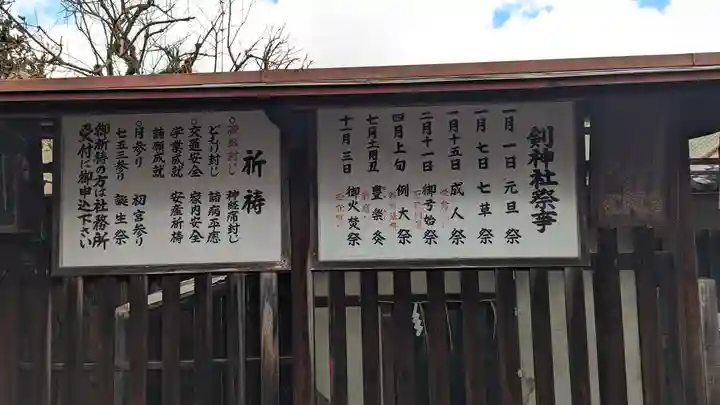 剣神社祭事
一月一日 元旦祭
一月七日 七草祭
一月十五日 成人祭
二月十一日 御弓始祭
四月上旬 例大祭
七月土用丑 豊楽灸
十一月三日 御火焚祭
祈祷
○疳虫封じ 神経痛封じ
どもり封じ 諸病平癒
○交通安全 家内安全
学業成就 安産祈祷
諸願成就
○月参り 初宮参り
七五三参り 誕生祭
御祈祷の方は社務所
受付に御申込下さい